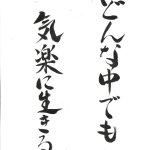 どんな中でも
気楽に生きる